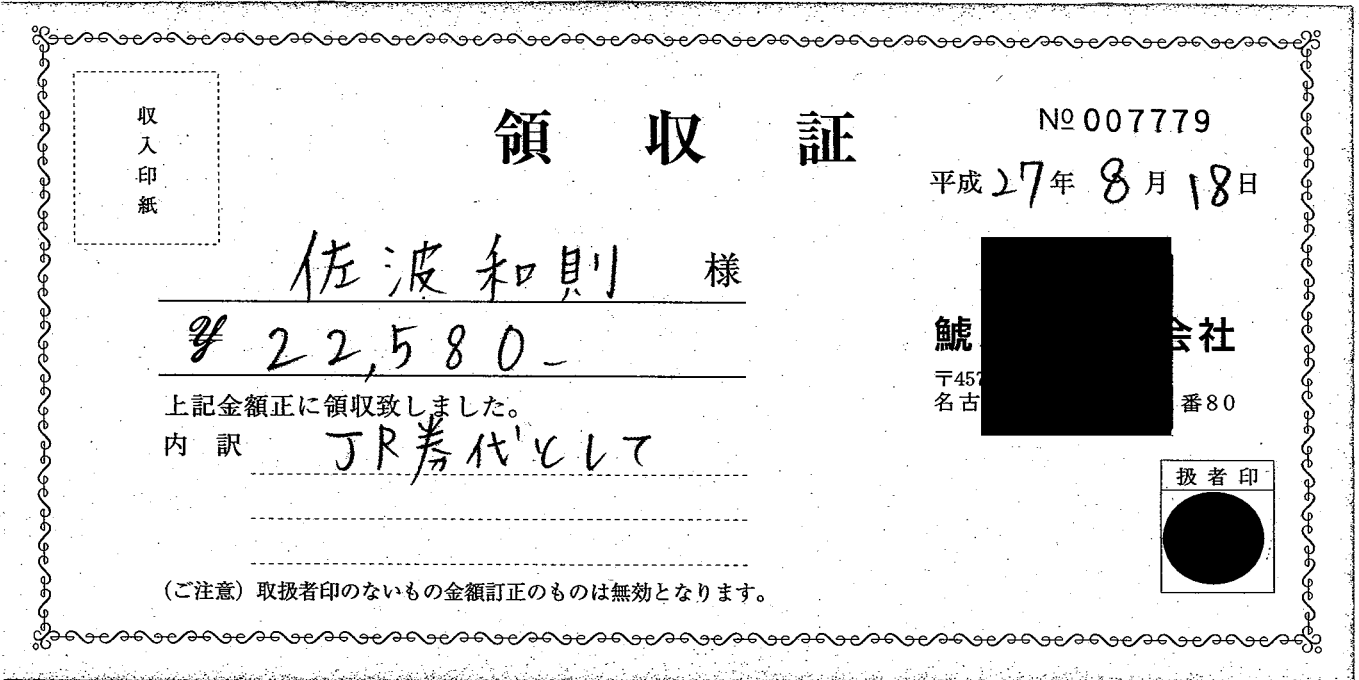 収入印紙
領収証
№007779
平成27年8月18日
佐波和則 様
¥22,580-
上記金額正に領収致しました。
内訳 JR券代として
鯱 会社
〒457
名古 番80
扱者印
(ご注意) 取扱者印のないもの金額訂正のものは無効となります。